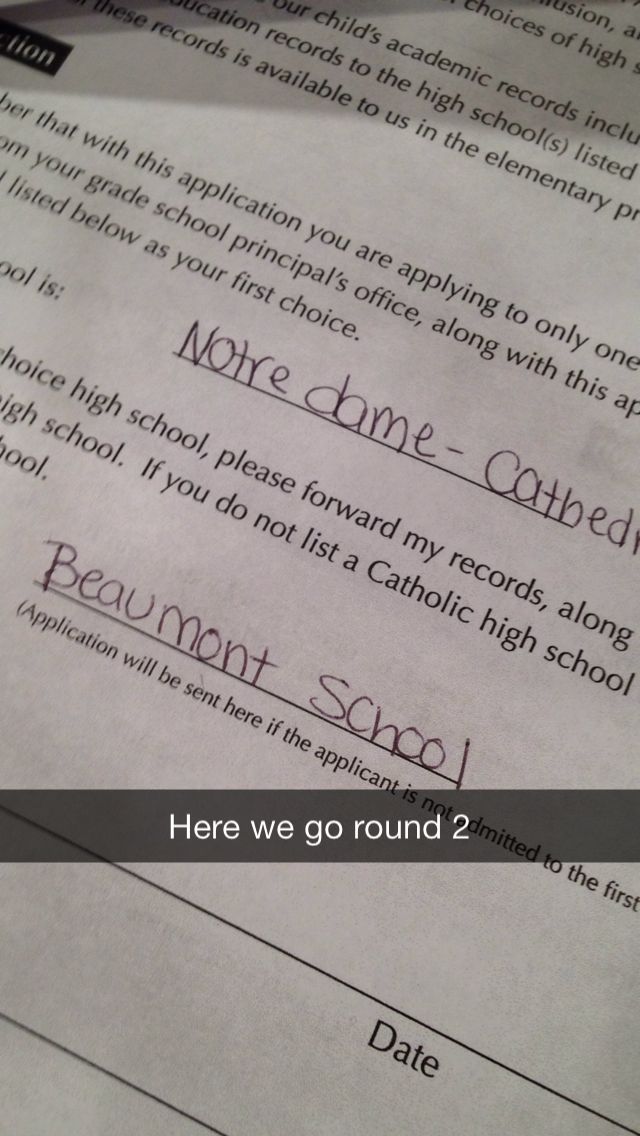 our child's academic records inclu
choices of high
ucation records to the high school(s) listed
these records is available to us in the elementary pr
ction
ber that with this application you are applying to only one
om your grade school principal's office, along with this ap
listed below as your first choice.
ool is:
Notre dame - Cathedr
hoice high school, please forward my records, along
igh school. If you do not list a Catholic high school
hool.
Beaumont School
(Application will be sent here if the applicant is not admitted to the first
Here we go round 2
Date